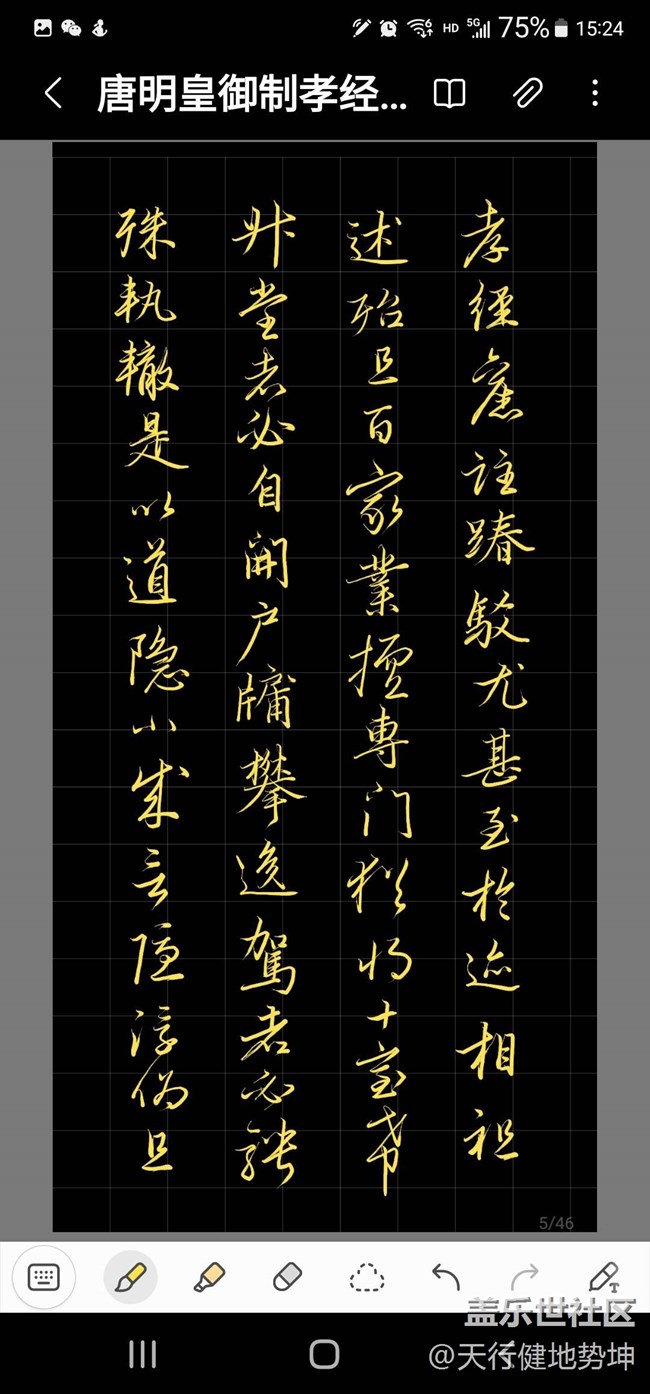 75% 15:24
唐明皇御制孝经...
孝經舊註踳駁尤甚至於迹相祖
述殆且百家業擅專门猶将十室希
升堂者必自開户牖攀逸駕者必騁
殊執轍是以道隐小成言隐浮偽且
5/46
盖乐世社区
@天行健地势坤